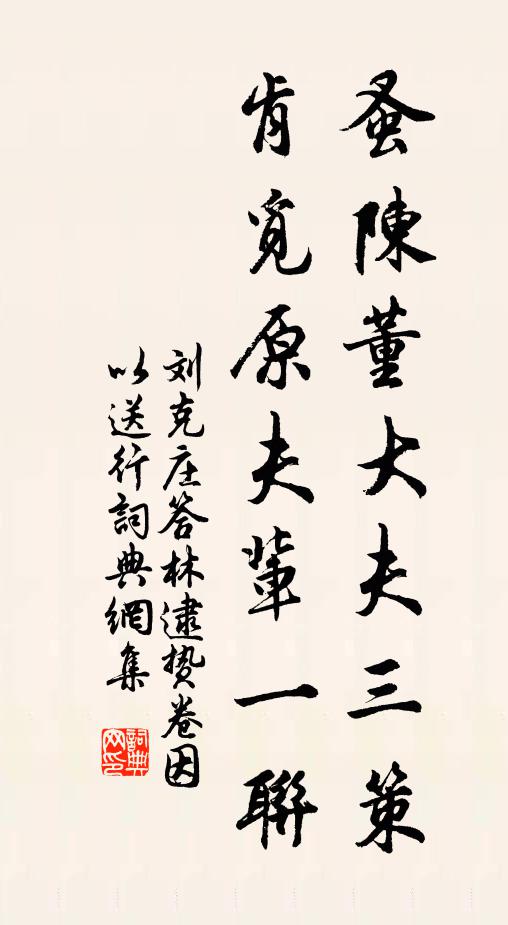 蚤陳董大夫三策
肯覓原夫輩一聯
刘克庄答林逮贽卷因
以送行詞典網集
詞典網印